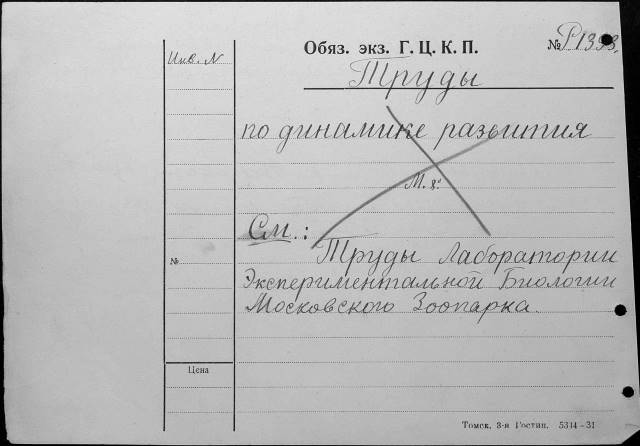 Инв. N
Обяз. экз. Г. Ц. К. П. № P1393.
Труды
по динамике развития
М. 8°
См.:
Труды Лаборатории
№
Экспериментальной Биологии
Московского Зоопарка.
Цена
Томск, 3-я Гостип. 5314-31